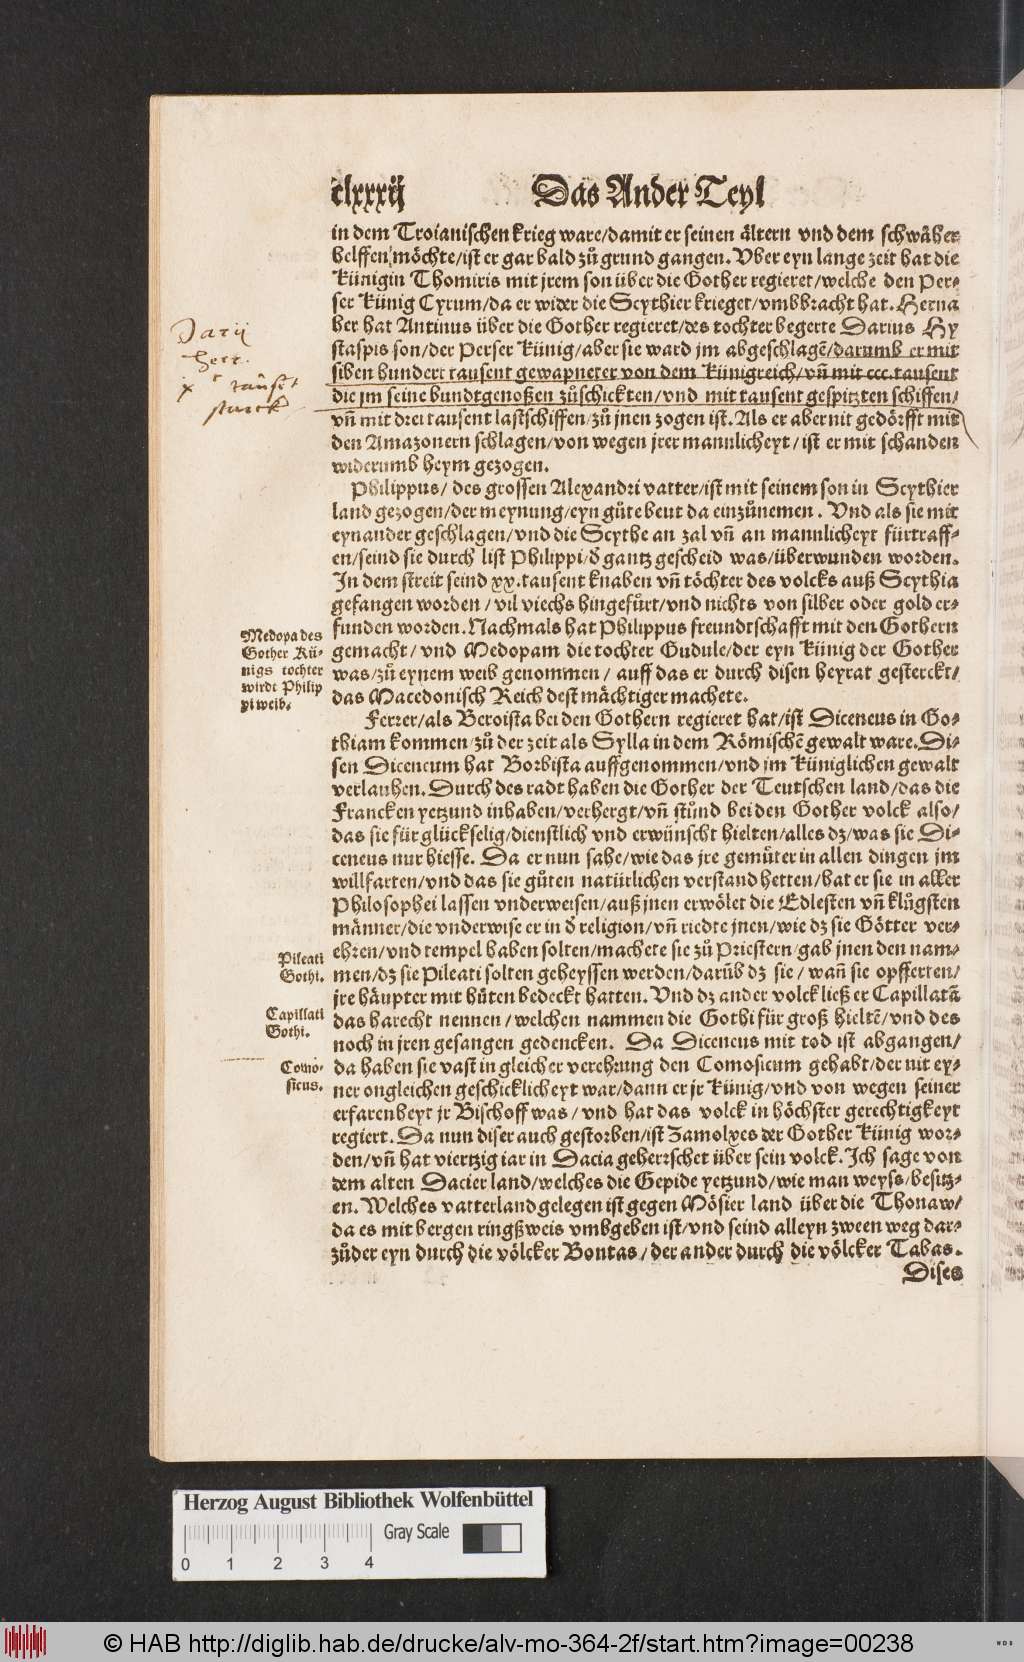 clxxxij Das Ander Teyl
in dem Troianischen krieg ware/damit er seinen ältern vnd dem schwäher
helffen möchte/ist er gar bald zů grund gangen. Vber eyn lange zeit hat die
Künigin Thomiris mit jrem son über die Gother regieret/welche den Per⸗
ser Künig Cyrum/da er wider die Scythier krieget/vmbbracht hat. Herna
her hat Antinus über die Gother regieret/des tochter begerte Darius Hy
staspis son/der Perser Künig/aber sie ward jm abgeschlagẽ/darumb er mit
siben hundert tausent gewapneter von dem Künigreich/vñ mit ccc.tausent
die jm seine bundtgenoßen zůschickten/vnd mit tausent gespitzten schiffen/
vñ mit drei tausent lastschiffen/zů jnen zogen ist. Als er aber nit gedörfft mit
den Amazonern schlagen/von wegen jrer mannlicheyt/ist er mit schanden
widerumb heym gezogen.
Philippus/des grossen Alexandri vatter/ist mit seinem son in Scythier
land gezogen/der meynung/eyn gůte beut da einzůnemen. Vnd als sie mit
eynander geschlagen/vnd die Scythe an zal vñ an mannlicheyt fürtraff⸗
en/seind sie durch list Philippi/d̕ gantz gescheid was/überwunden worden.
In dem streit seind xx.tausent knaben vñ töchter des volcks auß Scythia
gefangen worden/vil viechs hingefůrt/vnd nichts von silber oder gold er⸗
funden worden. Nachmals hat Philippus freundtschafft mit den Gothern
gemacht/vnd Medopam die tochter Gudule/der eyn Künig der Gother
was/zů eynem weib genommen/auff das er durch disen heyrat gesterckt/
das Macedonisch Reich dest mächtiger machete.
Ferrer/als Beroista bei den Gothern regieret hat/ist Diceneus in Go⸗
thiam kommen/zů der zeit als Sylla in dem Römischẽ gewalt ware. Di⸗
sen Diceneum hat Borbista auffgenommen/vnd jm Küniglichen gewalt
verlauhen. Durch des radt haben die Gother der Teutschen land/das die
Francken yetzund inhaben/verhergt/vñ stůnd bei den Gother volck also/
das sie für glückselig/dienstlich vnd erwünscht hielten/alles dz/was sie Di⸗
ceneus nur hiesse. Da er nun sahe/wie das jre gemüter in allen dingen jm
willfarten/vnd das sie gůten natürlichen verstand hetten/hat er sie in aller
Philosophei lassen vnderweisen/auß jnen erwölet die Edlesten vñ klůgsten
männer/die vnderwise er in d̕ religion/vñ riedte jnen/wie dz sie Götter ver⸗
ehren/vnd tempel haben solten/machete sie zů Priestern/gab jnen den nam⸗
men/dz sie Pileati solten geheyssen werden/darũb dz sie/wañ sie opfferten/
jre häupter mit hüten bedeckt hatten. Vnd dz ander volck ließ er Capillatã
das harecht nennen/welchen nammen die Gothi für groß hieltẽ/vnd des
noch in jren gesangen gedencken. Da Diceneus mit tod ist abgangen/
da haben sie vast in gleicher verehrung den Comosicum gehabt/der nit ey⸗
ner ongleichen geschicklicheyt war/dann er jr Künig/vnd von wegen seiner
erfarenheyt jr Bischoff was/vnd hat das volck in höchster gerechtigkeyt
regiert. Da nun diser auch gestorben/ist Zamolxes der Gother Künig wor⸗
den/vñ hat viertzig iar in Dacia geherrschet über sein volck. Ich sage von
dem alten Dacier land/welches die Gepide yetzund/wie man weyss/besitz⸗
en. Welches vatterland gelegen ist gegen Mösier land über die Thonaw/
da es mit bergen ringßweis vmbgeben ist/vnd seind alleyn zween weg dar⸗
zů/der eyn durch die völcker Bontas/der ander durch die völcker Tabas.
Dises
Darij
herr.
tausēt
starck
Medopa des
Gother Kü⸗
nigs tochter
wirdt Philip
pi weib.
Pileati
Gothi.
Capillati
Gothi.
Como⸗
sicus.
Herzog August Bibliothek Wolfenbüttel
Gray Scale
0 1 2 3 4
© HAB http://diglib.hab.de/drucke/alv-mo-364-2f/start.htm?image=00238